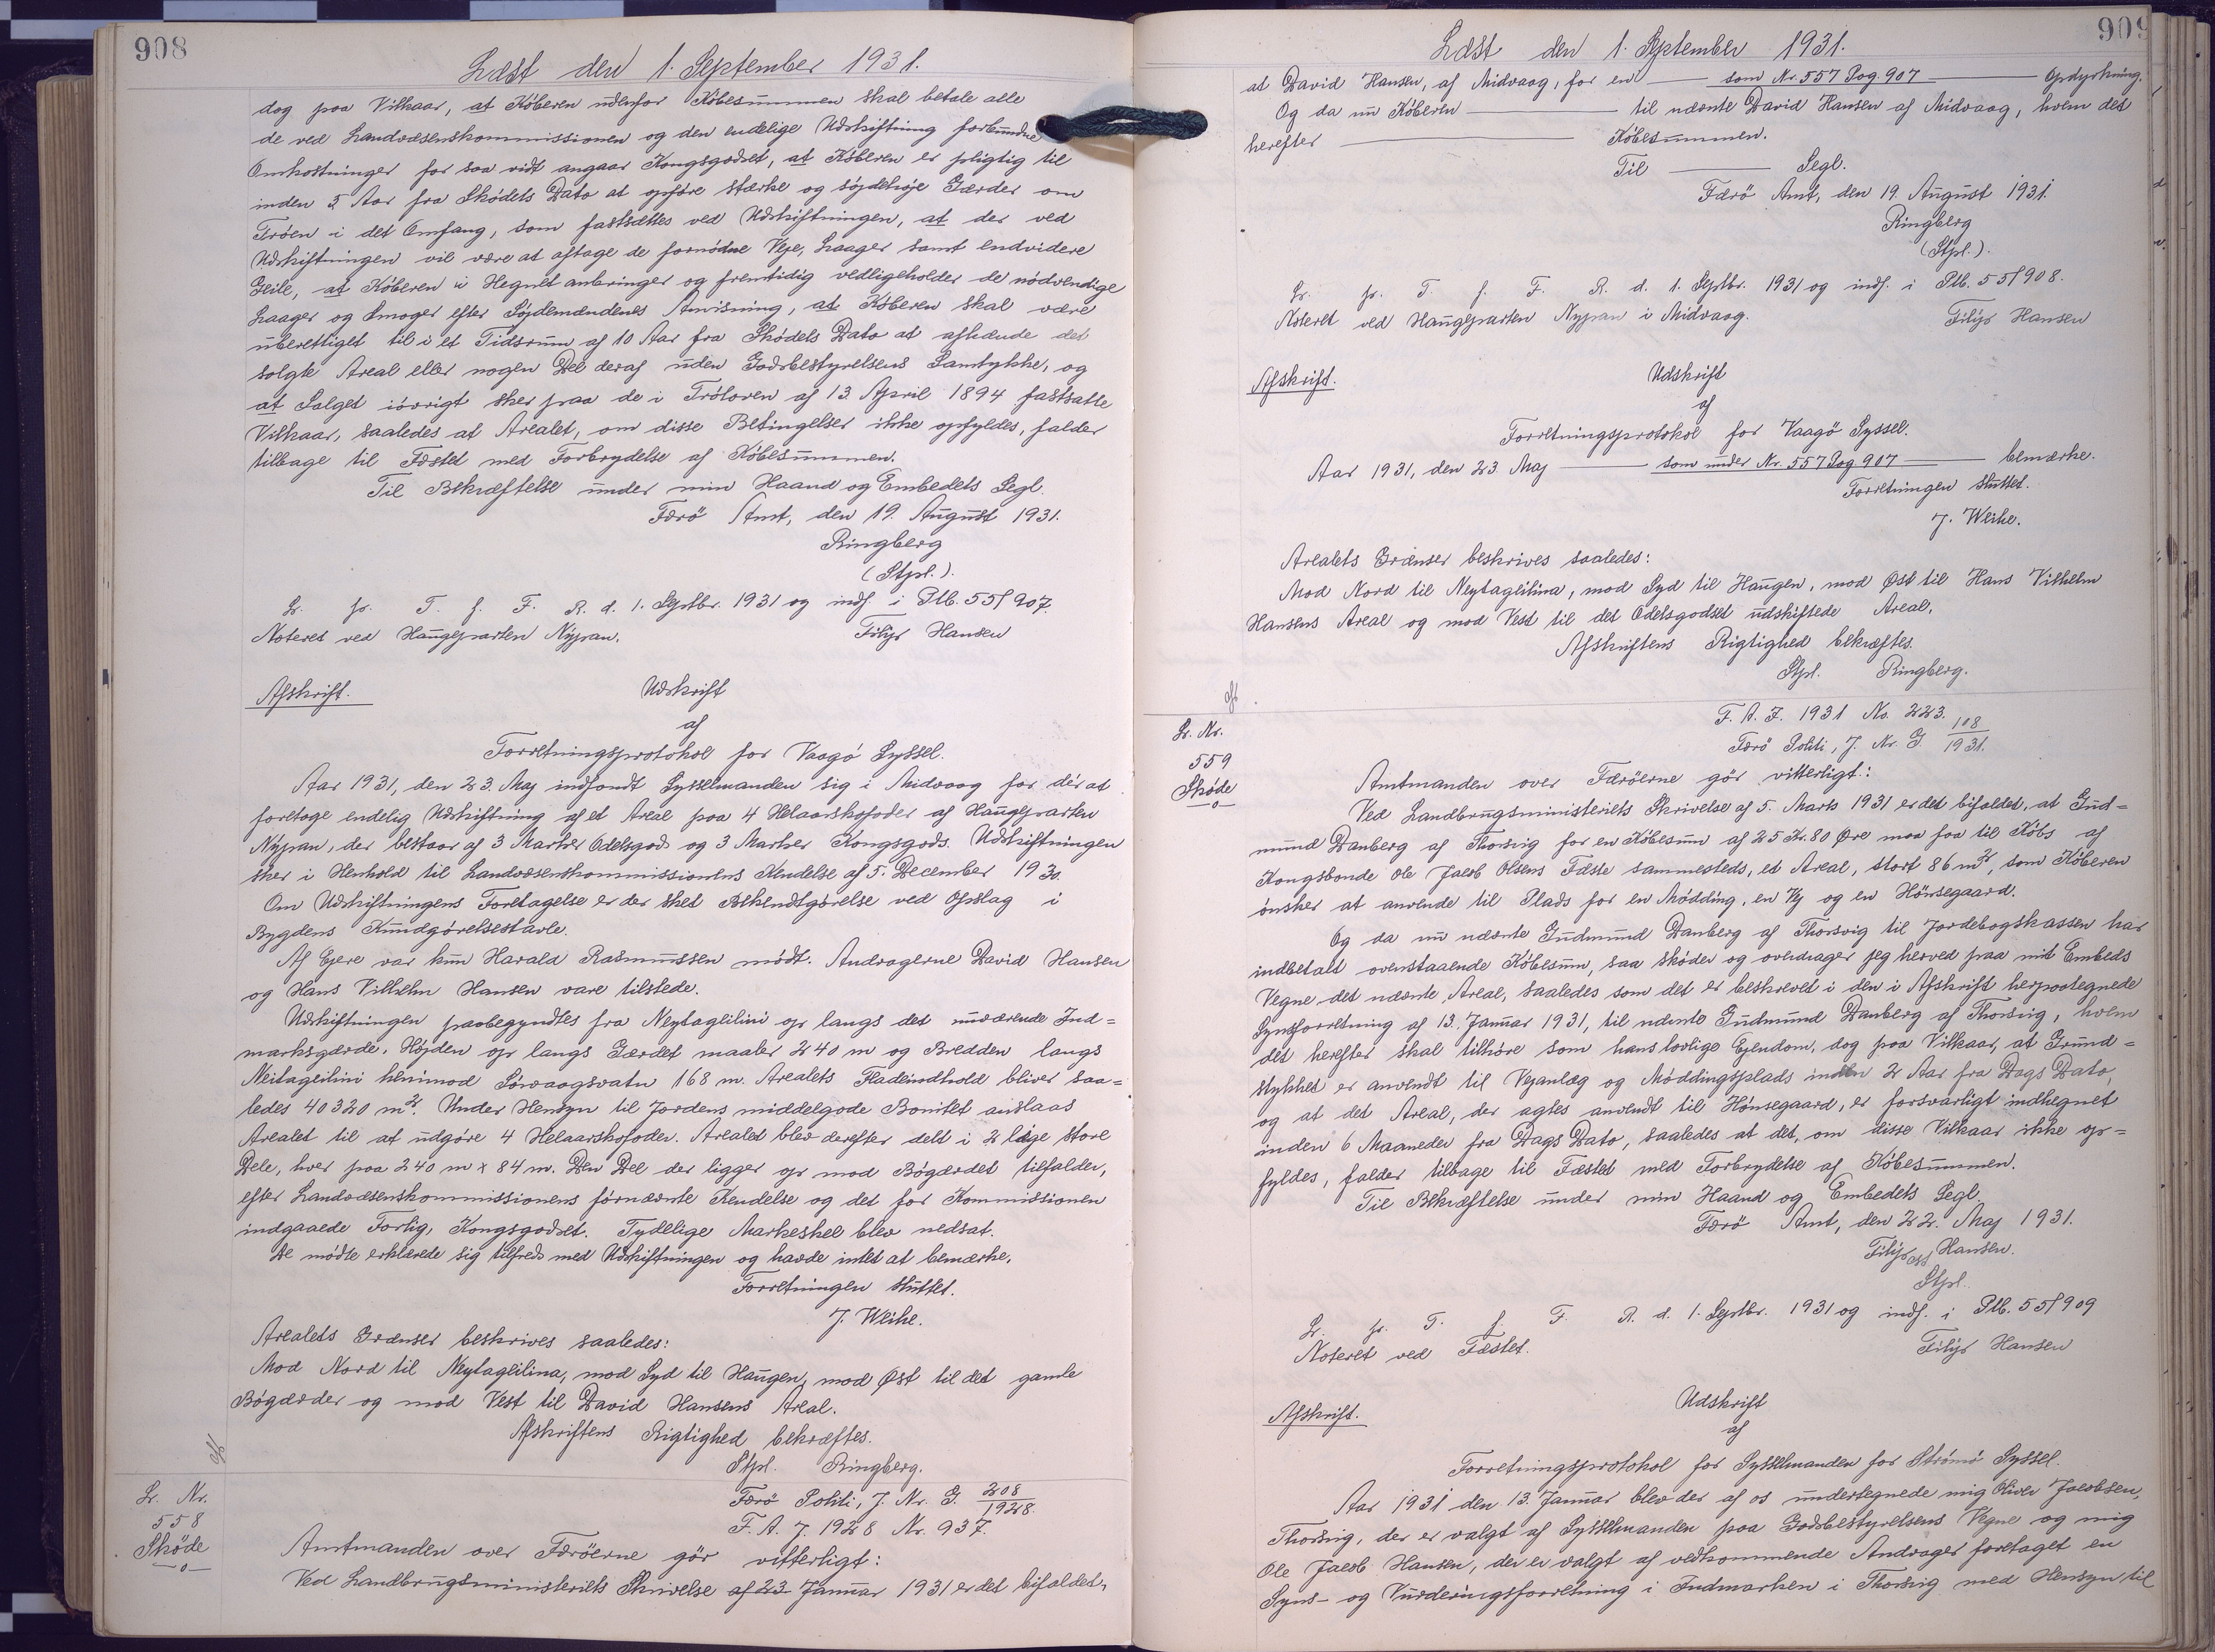 908
Læst den 1. September 1931.
dog paa Vilkaar, at Köberen udenfor Köbesummen skal betale alle
de ved Landvæsenskommissionen og den endelige Udskiftning forbundne
Omkostninger for saa vidt angaar Kongsgodset, at Köberen er pligtig til
inden 5 Aar fra Sködets Dato at opföre stærke og söjdehöje Gærder om
Tröen i det Omfang, som fastsættes ved Udskiftningen, at der ved
Udskiftningen vil være at aftage de fornödne Veje, Laager samt endvidere
Geile, at Köberen i Hegnet anbringer og fremtidig vedligeholder de nödvendige
Laager og Smoger efter Söjdemændenes Anvisning, at Köberen skal være
uberettiget til i et Tidsrum af 10 Aar fra Sködets Dato at afhænde det
solgte Areal eller nogen Del deraf uden Godsbestyrelsens Samtykke, og
at Salget iövrigt sker paa de i Tröloven af 13. April 1894 fastsatte
Vilkaar, saaledes at Arealet, om disse Betingelser ikke opfyldes, falder
tilbage til Fæstet med Forbrydelse af Köbesummen.
Til Bekræftelse under min Haand og Embedets Segl.
Færö Amt, den 19. August 1931.
Ringberg
(Stpl.).
L. p. T. f. F. R. d. 1. Septbr. 1931 og indf. i Ptb. 55/907.
Noteret ved Haugeparten Nypan.
Filips Hansen
Afskrift.
Udskrift
af
Forretningsprotokol for Vaagö Syssel.
Aar 1931, den 23. Maj indfandt Sysselmanden sig i Midvaag for dér at
foretage endelig Udskiftning af et Areal paa 4 Helaarskofoder af Haugeparten
Nypan, der bestaar af 3 Marker Odelsgods og 3 Marker Kongsgods. Udskiftningen
sker i Henhold til Landvæsenskommissionens Kendelse af 5. December 1930.
Om Udskiftningens Foretagelse er der sket Bekendtgörelse ved Opslag i
Bygdens Kundgörelsestavle.
Af Ejere var kun Harald Rasmussen mödt. Andragerne David Hansen
og Hans Vilhelm Hansen vare tilstede.
Udskiftningen paabegyndtes fra Neytageilini op langs det nuværende Ind=
marksgærde. Höjden op langs Gærdet maaler 240 m og Bredden langs
Neitageilini henimod Sörvaagsvatn 168 m. Arealets Fladeindhold bliver saa=
ledes 40320 m². Under Hensyn til Jordens middelgode Bonitet anslaas
Arealet til at udgöre 4 Helaarskofoder. Arealet blev derefter delt i 2 lige store
Dele, hver paa 240 m x 84 m. Den Del der ligger op mod Bögærdet tilfalder,
efter Landvæsenskommissionens förnævnte Kendelse og det for Kommissionen
indgaaede Forlig, Kongsgodset. Tydelige Markeskel blev nedsat.
De mödte erklærede sig tilfreds med Udskiftningen og havde intet at bemærke.
Forretningen sluttet.
J. Weihe.
Arealets Grænser beskrives saaledes:
Mod Nord til Neytageilina, mod Syd til Haugen, mod Øst til det gamle
Bögærder og mod Vest til David Hansens Areal.
Afskriftens Rigtighed bekræftes.
Stpl. Ringberg.
L. Nr.
558
Sköde
Færö Politi, J. Nr. G. 208/1928.
F. A. J. 1928 Nr. 937.
Amtmanden over Færöerne gör vitterligt:
Ved Landbrugsministeriets Skrivelse af 23 Januar 1931 er det bifaldet,
909
Læst den 1. September 1931.
at David Hansen, af Midvaag, for en — som Nr. 557 Pag. 907 — Opdyrkning.
Og da nu Köberen — til nævnte David Hansen af Midvaag, hvem det
herefter — Köbesummen.
Til — Segl.
Færö Amt, den 19. August 1931.
Ringberg
(Stpl.).
L. p. T. f. F. R. d. 1. Septbr. 1931 og indf. i Ptb. 55/908.
Noteret ved Haugeparten Nypan i Midvaag.
Filips Hansen
Afskrift.
Udskrift
af
Forretningsprotokol for Vaagö Syssel.
Aar 1931, den 23 Maj — som under Nr. 557 Pag 907 — bemærke.
Forretningen sluttet.
J. Weihe.
Arealets Grænser beskrives saaledes:
Mod Nord til Neytageilina, mod Syd til Haugen, mod Øst til Hans Vilhelm
Hansens Areal og mod Vest til det Odelsgodset udskiftede Areal.
Afskriftens Rigtighed bekræftes.
Stpl. Ringberg.
L. Nr.
559
Sköde
F. A. J. 1931 No. 223.
Færö Politi, J. Nr. G. 108/1931.
Amtmanden over Færöerne gör vitterligt:
Ved Landbrugsministeriets Skrivelse af 5. Marts 1931 er det bifaldet, at Gud=
mund Danberg af Thorsvig for en Köbesum af 25 Kr. 80 Øre maa faa til Köbs af
Kongsbonde Ole Jacob Olsens Fæste sammesteds, et Areal, stort 86 m², som Köberen
önsker at anvende til Plads for en Mödding, en Vej og en Hönsegaard.
Og da nu nævnte Gudmund Danberg af Thorsvig til Jordebogskassen har
indbetalt ovenstaaende Köbesum, saa sköder og overdrager jeg herved paa mit Embeds
Vegne det nævnte Areal, saaledes som det er beskrevet i den i Afskrift herpaategnede
Synsforretning af 13. Januar 1931, til nævnte Gudmund Danberg af Thorsvig, hvem
det herefter skal tilhöre som hans lovlige Ejendom, dog paa Vilkaar, at Grund=
stykket er anvendt til Vejanlæg og Möddingsplads inden 2 Aar fra Dags Dato,
og at det Areal, der agtes anvendt til Hönsegaard, er forsvarligt indhegnet
inden 6 Maaneder fra Dags Dato, saaledes at det, om disse Vilkaar ikke op=
fyldes, falder tilbage til Fæstet med Forbrydelse af Köbesummen.
Til Bekræftelse under min Haand og Embedets Segl.
Færö Amt, den 22. Maj 1931.
Filips Hansen.
Stpl.
L. p. T. f. F. R. d. 1. Septbr. 1931 og indf. i Ptb. 55/909
Noteret ved Fæstet.
Filips Hansen
Afskrift.
Udskrift
af
Forretningsprotokol for Sysselmanden for Strömö Syssel.
Aar 1931 den 13. Januar blev der af os undertegnede mig Oliver Jacobsen,
Thorsvig, der er valgt af Sysselmanden paa Godsbestyrelsens Vegne og mig
Ole Jacob Hansen, der er valgt af vedkommende Andrager foretaget en
Syns- og Vurderingsforretning i Indmarken i Thorsvig med Hensyn til